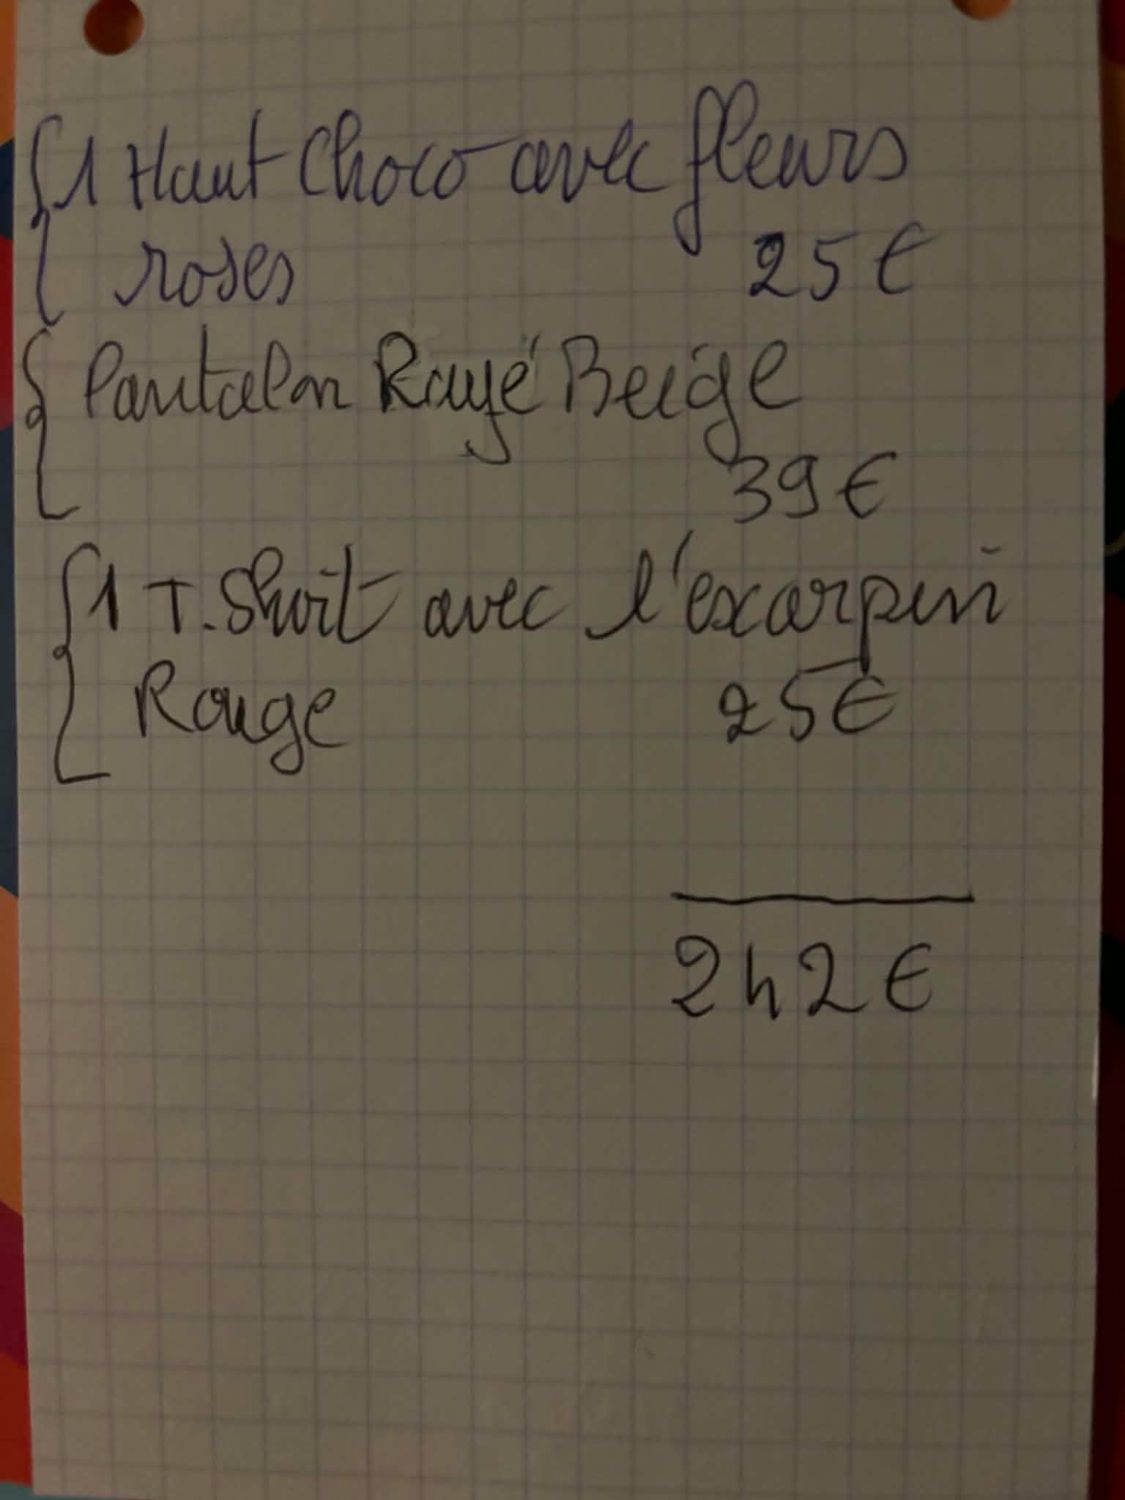 1 Haut Choco avec fleurs
roses 25€
Pantalon Rayé Beige
39€
1 T.Shirt avec l'excarpin
Rouge 25€
242€